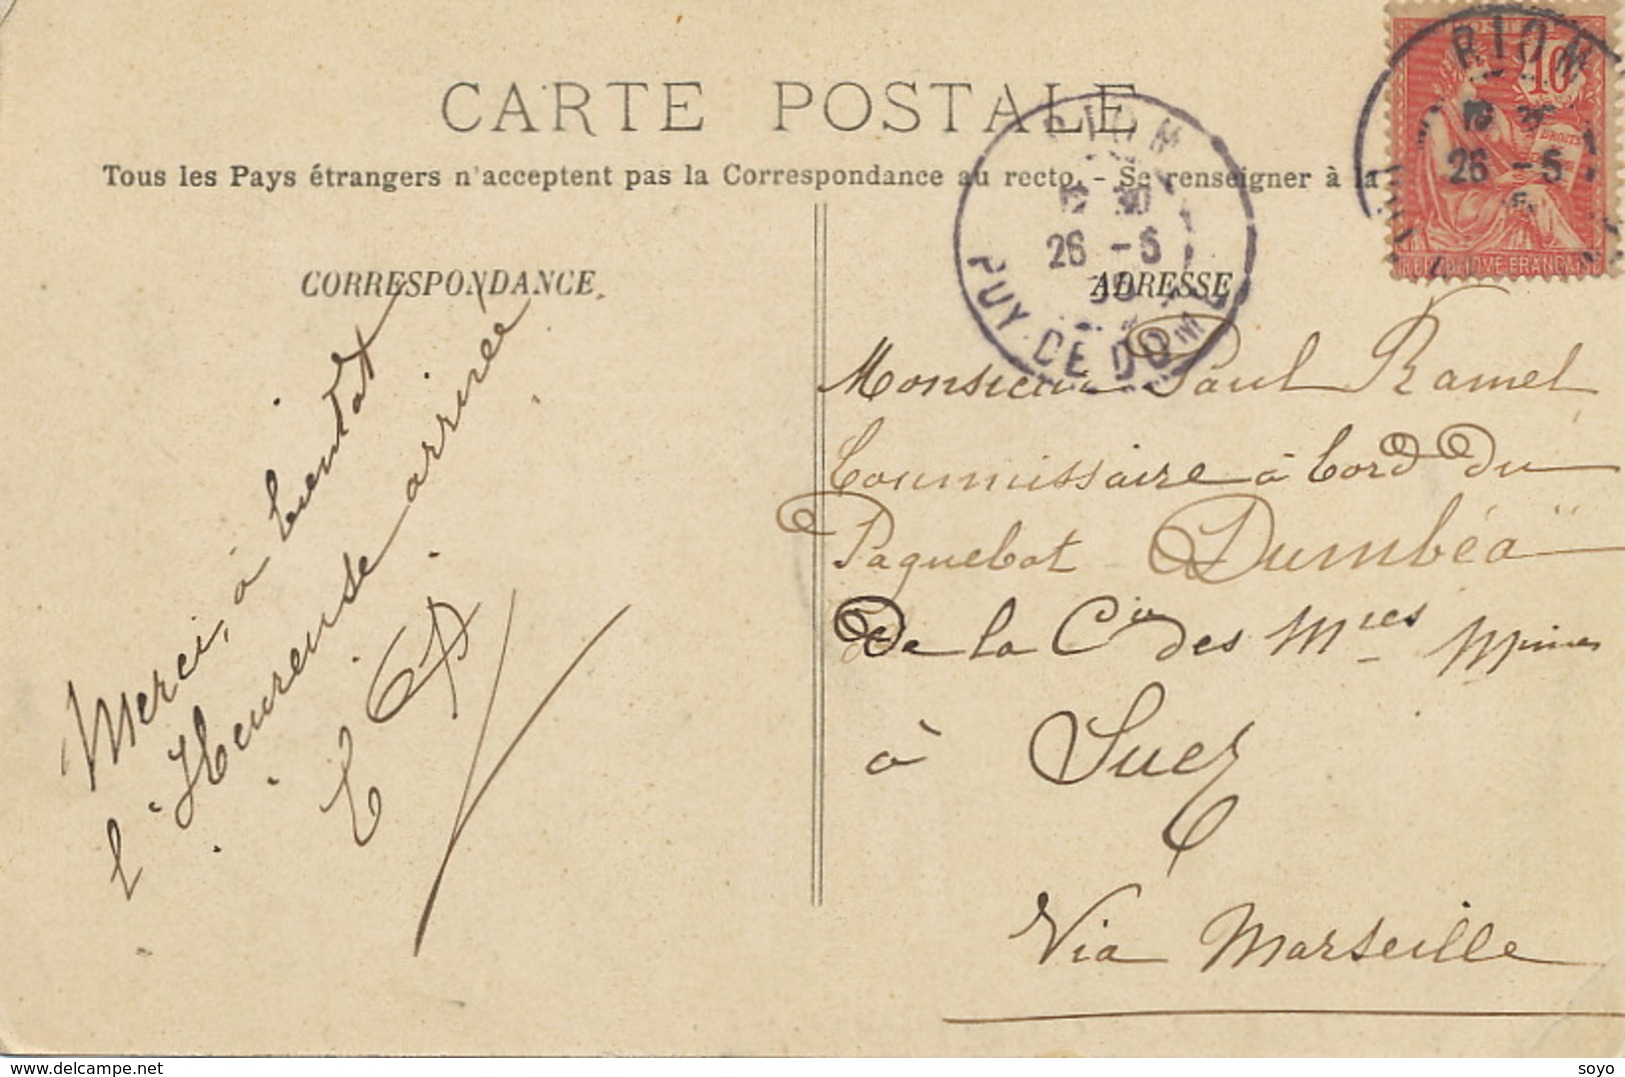 CARTE POSTALE
Tous les Pays étrangers n'acceptent pas la Correspondance au recto. - Se renseigner à la
CORRESPONDANCE
ADRESSE
Merci, à bientôt
l'Heureuse arrivée
RIOM
26 -5
PUY-DE-DOME
RIOM
10
DROITS
26 -5
REPUBLIQUE FRANÇAISE
Monsieur Paul Ramel
Commissaire à bord du
Paquebot Dumbéa
De la Cie des Mies Mmes
à Suez
Via Marseille
delcampe.net
soyo